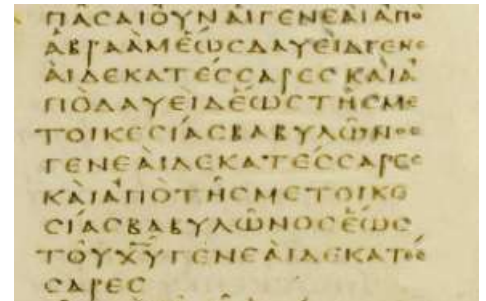 ΠΑϹΑΙΟΥΝΑΙΓΕΝΕΑΙΑΠΟ
ΑΒΡΑΑΜΕΩϹΔΑΥΕΙΔΓΕΝΕ
ΑΙΔΕΚΑΤΕϹϹΑΡΕϹΚΑΙΑ
ΠΟΔΑΥΕΙΔΕΩϹΤΗϹΜΕ
ΤΟΙΚΕϹΙΑϹΒΑΒΥΛΩΝΟϹ
ΓΕΝΕΑΙΔΕΚΑΤΕϹϹΑΡΕϹ
ΚΑΙΑΠΟΤΗϹΜΕΤΟΙΚΕ
ϹΙΑϹΒΑΒΥΛΩΝΟϹΕΩϹ
ΤΟΥΧ̅Υ̅ΓΕΝΕΑΙΔΕΚΑΤΕϹ
ϹΑΡΕϹ